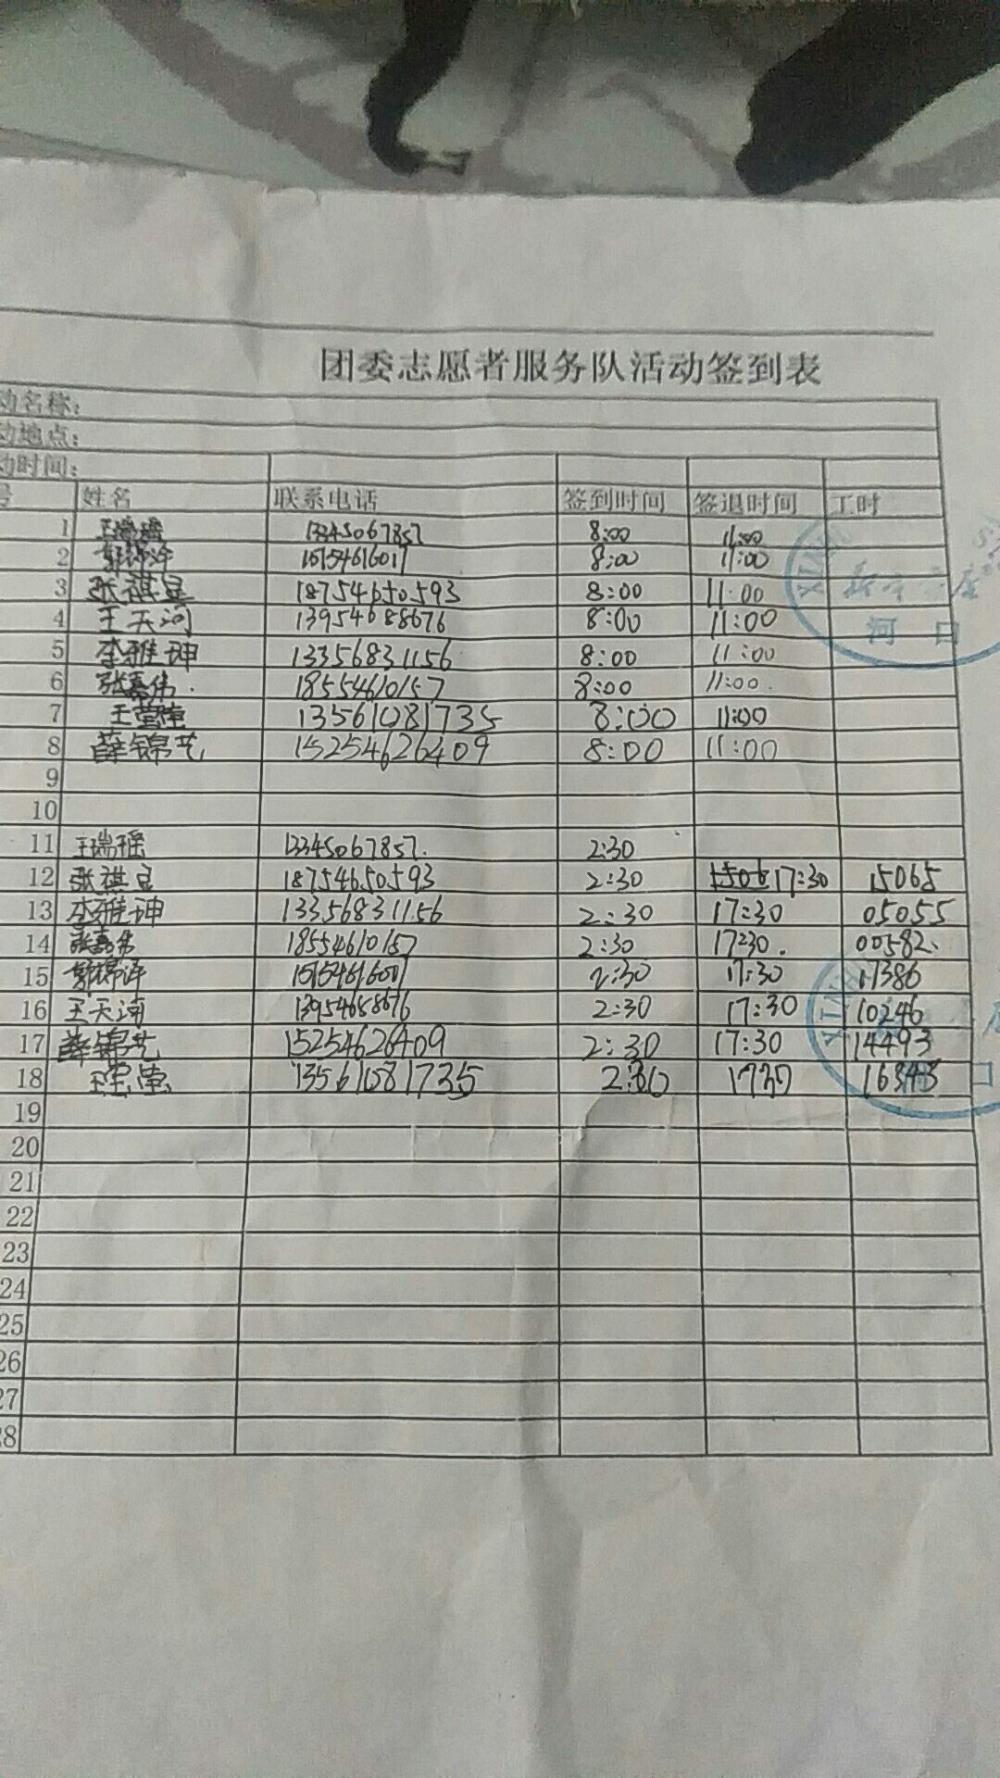 团委志愿者服务队活动签到表
动名称：
动地点：
动时间：
号 姓名 联系电话 签到时间 签退时间 工时
1 王瑞瑶 13345067857 8:00 11:00
2 郭锦泽 8:00 11:00
3 张祺昱 18754650593 8:00 11:00
4 王天河 13954688676 8:00 11:00
5 李雅珅 13356831156 8:00 11:00
6 张嘉伟. 18554610157 8:00 11:00.
7 13561081735 8:00 11:00
8 薛锦艺 15254626409 8:00 11:00
9
10
11 王瑞瑶 13345067857. 2:30
12 张祺昱 18754650593 2:30 17:30 15065
13 李雅珅 13356831156 2:30 17:30 05055
14 张嘉伟 18554610157 2:30 1730. 00582.
15 郭锦泽 2:30 17:30 17386
16 王天河 13954688676 2:30 17:30 10246
17 薛锦艺 15254626409 2:30 17:30 14493
18 13561081735 2:30
19
20
21
22
23
24
25
26
27
28
河口